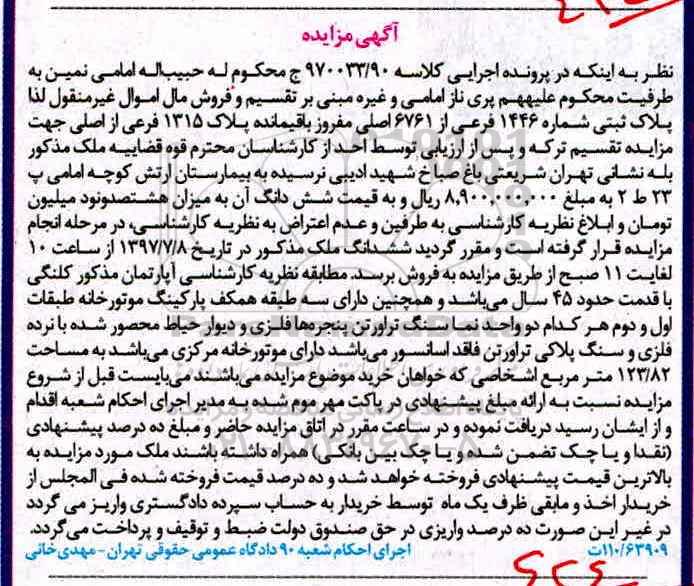 آگهی مزایده
نظر به اینکه در پرونده اجرایی کلاسه ۹۷۰۰۳۳/۹۰ ج محکوم له حبیب‌اله امامی نمین به
طرفیت محکوم علیههم پری ناز امامی و غیره مبنی بر تقسیم و فروش مال اموال غیرمنقول لذا
پلاک ثبتی شماره ۱۴۴۶ فرعی از ۶۷۶۱ اصلی مفروز باقیمانده پلاک ۱۳۱۵ فرعی از اصلی جهت
مزایده تقسیم ترکه و پس از ارزیابی توسط احد از کارشناسان محترم قوه قضاییه ملک مذکور
بله نشانی تهران شریعتی باغ صبا خ شهید ادیبی نرسیده به بیمارستان ارتش کوچه امامی پ
۲۳ ط ۲ به مبلغ ۸,۹۰۰,۰۰۰,۰۰۰ ریال و به قیمت شش دانگ آن به میزان هشتصدونود میلیون
تومان و ابلاغ نظریه کارشناسی به طرفین و عدم اعتراض به نظریه کارشناسی، در مرحله انجام
مزایده قرار گرفته است و مقرر گردید ششدانگ ملک مذکور در تاریخ ۱۳۹۷/۷/۸ از ساعت ۱۰
لغایت ۱۱ صبح از طریق مزایده به فروش برسد. مطابقه نظریه کارشناسی آپارتمان مذکور کلنگی
با قدمت حدود ۴۵ سال می‌باشد و همچنین دارای سه طبقه همکف پارکینگ موتورخانه طبقات
اول و دوم هر کدام دو واحد نما سنگ تراورتن پنجره‌ها فلزی و دیوار حیاط محصور شده با نرده
فلزی و سنگ پلاکی تراورتن فاقد اسانسور می‌باشد دارای موتورخانه مرکزی می‌باشد به مساحت
۱۲۳/۸۲ متر مربع اشخاصی که خواهان خرید موضوع مزایده می‌باشند می‌بایست قبل از شروع
مزایده نسبت به ارائه مبلغ پیشنهادی در پاکت مهر موم شده به مدیر اجرای احکام شعبه اقدام
و از ایشان رسید دریافت نموده و در ساعت مقرر در اتاق مزایده حاضر و مبلغ ده درصد پیشنهادی
(نقدا و یا چک تضمن شده و یا چک بین بانکی) همراه داشته باشند ملک مورد مزایده به
بالاترین قیمت پیشنهادی فروخته خواهد شد و ده درصد قیمت فروخته شده فی المجلس از
خریدار اخذ و مابقی ظرف یک ماه توسط خریدار به حساب سپرده دادگستری واریز می گردد
در غیر این صورت ده درصد واریزی در حق صندوق دولت ضبط و توقیف و پرداخت می‌گردد.
۱۱۰/۶۳۹۰۹ت اجرای احکام شعبه ۹۰ دادگاه عمومی حقوقی تهران - مهدی خانی